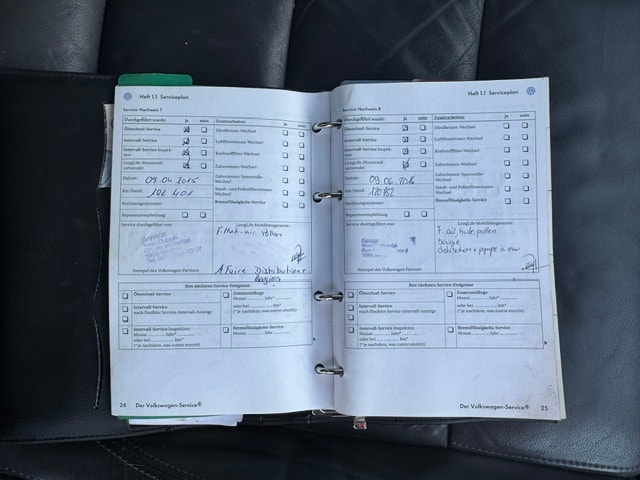 Heft 1.1 Serviceplan
Service-Nachweis 7
Durchgeführt wurde: ja nein
Ölwechsel-Service
Intervall-Service
Intervall-Service Inspektion:
LongLife Motorenöl verwendet
Datum: 09.04.2015
km-Stand: 102 401
Rechnungsnummer:
Reparaturempfehlung
Service durchgeführt von:
GARAGE
Stempel des Volkswagen Partners
Zusatzarbeiten: ja nein
Zündkerzen-Wechsel
Luftfiltereinsatz-Wechsel
Kraftstofffilter-Wechsel
Zahnriemen-Wechsel
Zahnriemen-Spannrolle-Wechsel
Staub- und Pollenfiltereinsatz-Wechsel
Bremsflüssigkeits-Service
LongLife Mobilitätsgarantie:
A Faire Distribution +
Bougies
Ihre nächsten Service-Ereignisse
Ölwechsel-Service
Intervall-Service
nach flexibler Service-Intervall-Anzeige
Intervall-Service Inspektion:
Monat Jahr*
oder bei km*
(* je nachdem, was zuerst eintritt)
Zusatzumfänge
Monat Jahr*
oder bei km*
(* je nachdem, was zuerst eintritt)
Bremsflüssigkeits-Service
Monat Jahr
24 Der Volkswagen-Service®
Heft 1.1 Serviceplan
Service-Nachweis 8
Durchgeführt wurde: ja nein
Ölwechsel-Service
Intervall-Service
Intervall-Service Inspektion:
LongLife Motorenöl verwendet
Datum: 09.06.2016
km-Stand: 120 152
Rechnungsnummer:
Reparaturempfehlung
Service durchgeführt von:
Stempel des Volkswagen Partners
Zusatzarbeiten: ja nein
Zündkerzen-Wechsel
Luftfiltereinsatz-Wechsel
Kraftstofffilter-Wechsel
Zahnriemen-Wechsel
Zahnriemen-Spannrolle-Wechsel
Staub- und Pollenfiltereinsatz-Wechsel
Bremsflüssigkeits-Service
LongLife Mobilitätsgarantie:
F. air, huile, pollen
Bougie
distribution + pompe à eau
Ihre nächsten Service-Ereignisse
Ölwechsel-Service
Intervall-Service
nach flexibler Service-Intervall-Anzeige
Intervall-Service Inspektion:
Monat Jahr*
oder bei km*
(* je nachdem, was zuerst eintritt)
Zusatzumfänge
Monat Jahr*
oder bei km*
(* je nachdem, was zuerst eintritt)
Bremsflüssigkeits-Service
Monat Jahr
Der Volkswagen-Service® 25